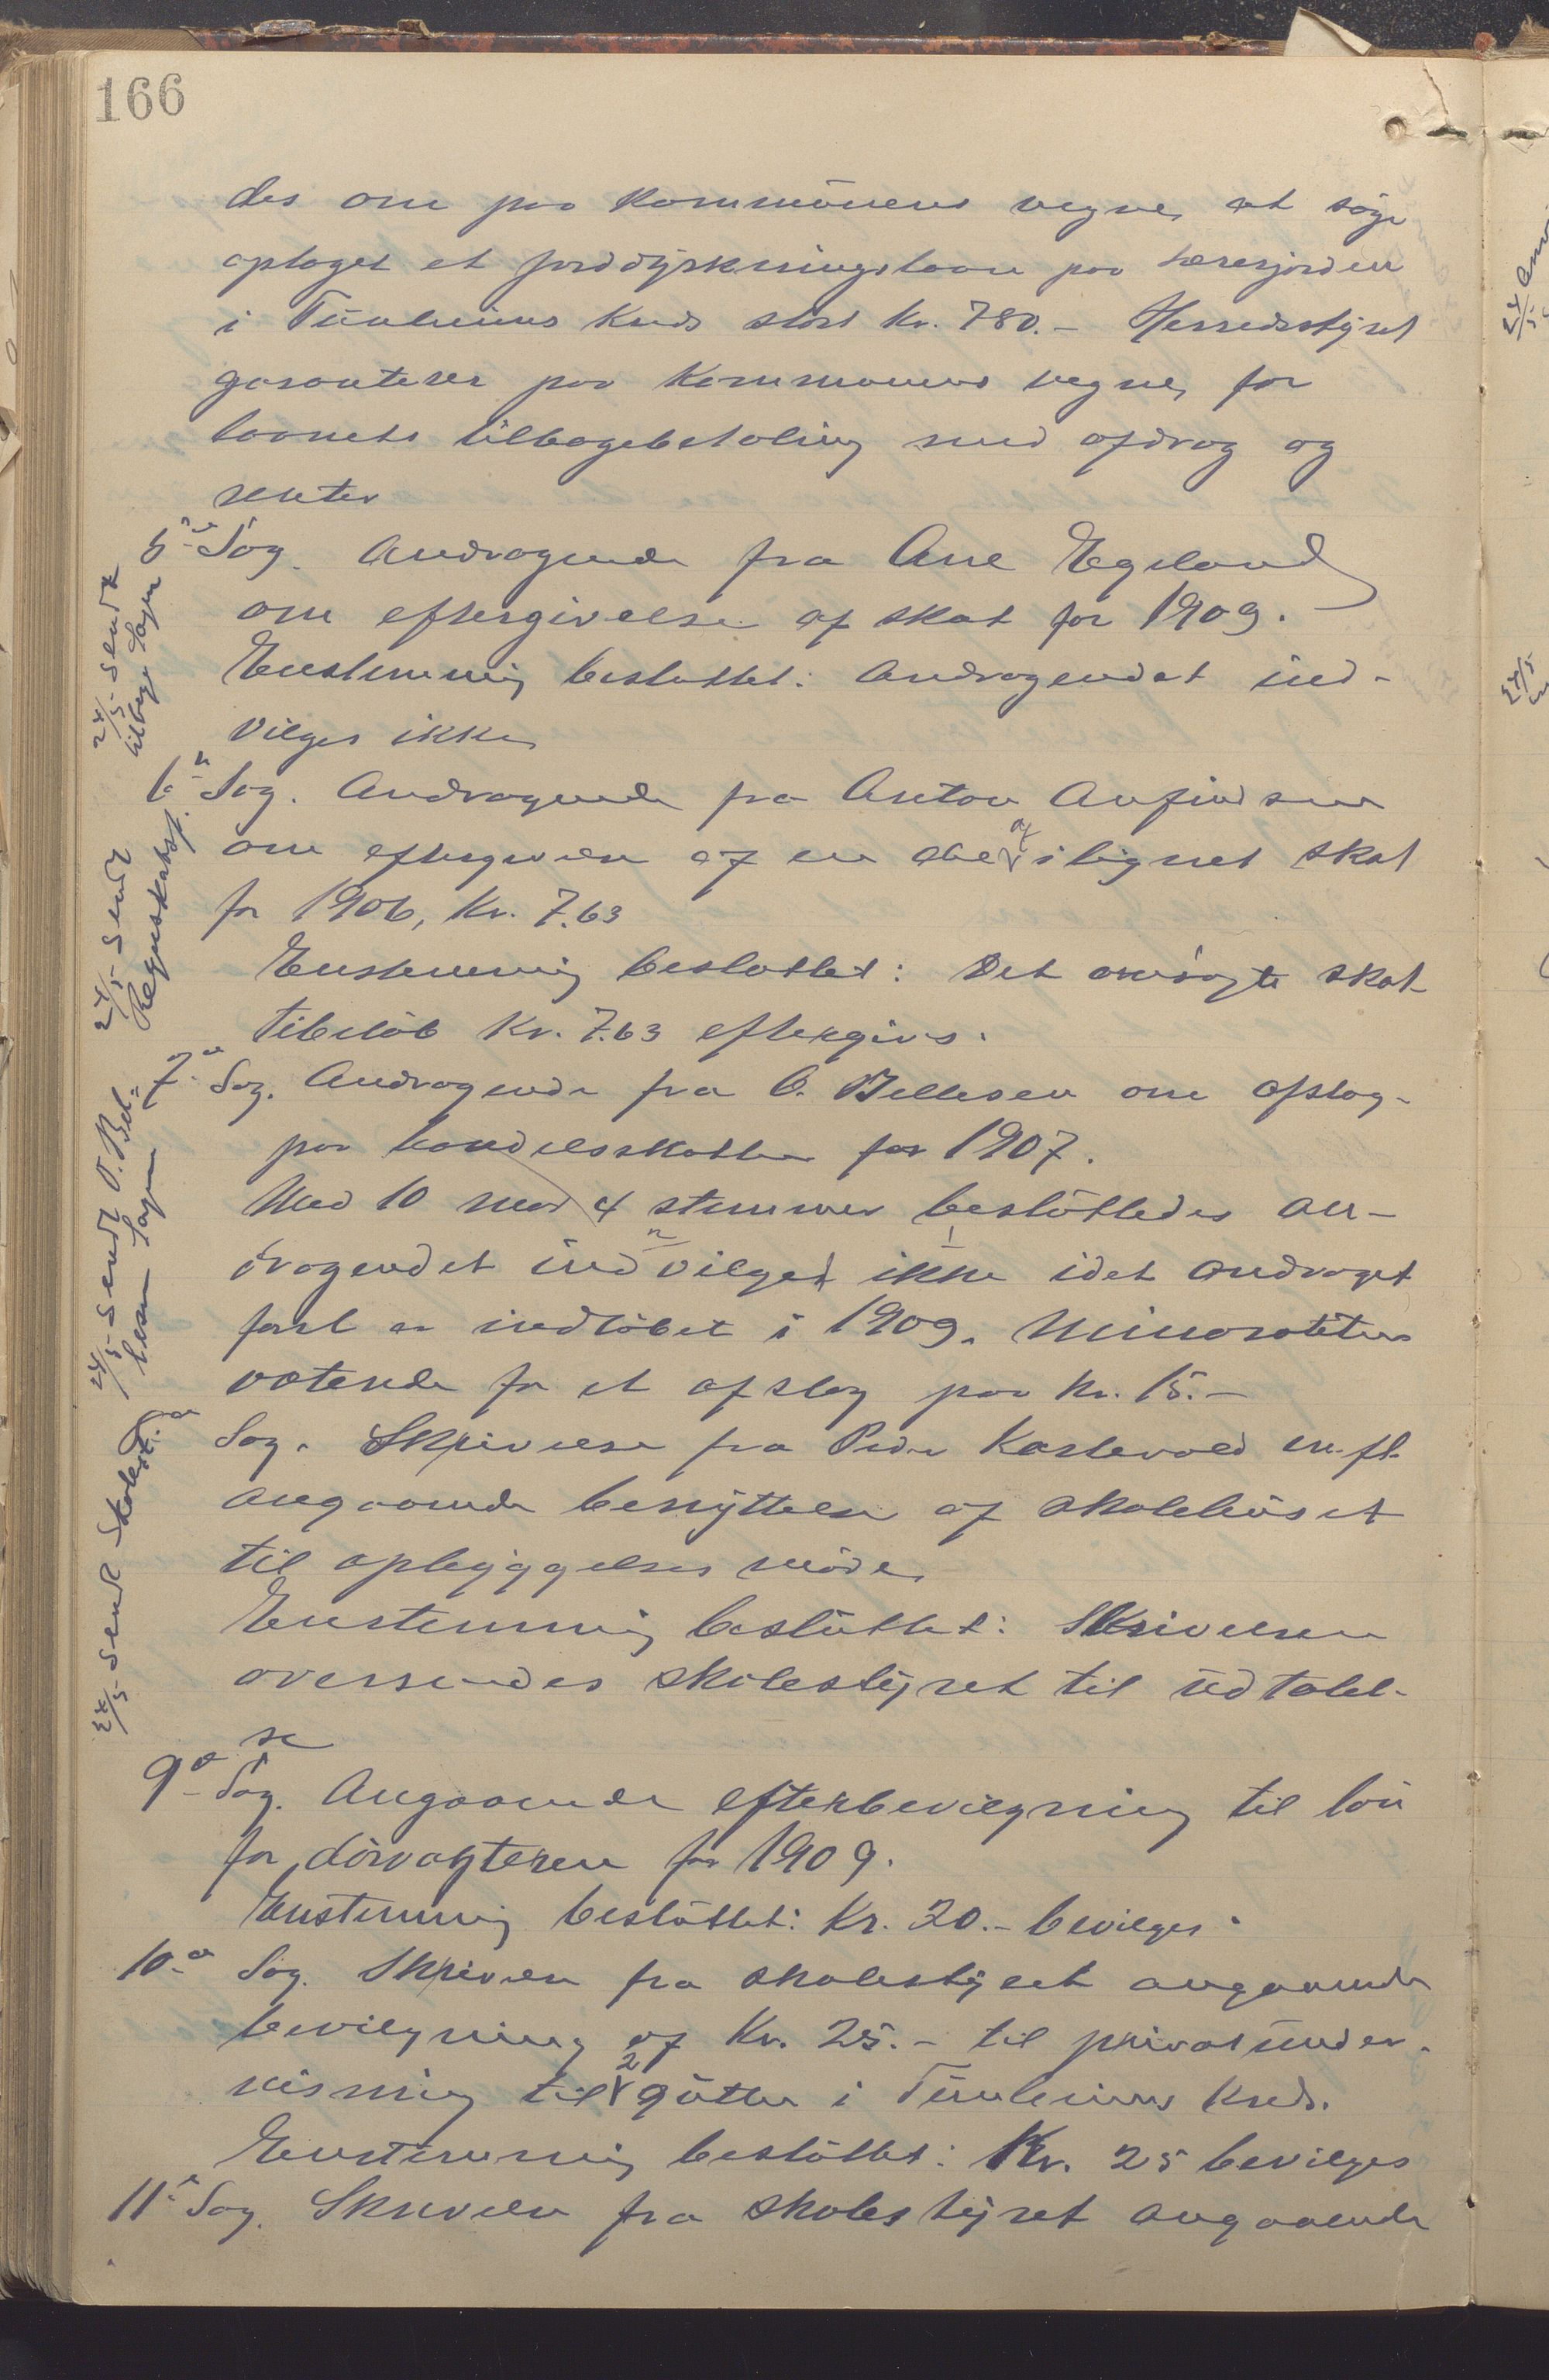 166
des om paa kommunens vegne at søge
optaget et jorddyrkningslaan paa lærerjorden
i Tunheims Kreds stort kr. 780.- Herredsstyret
garanterer paa Kommunens vegne for
laanets tilbagebetaling med afdrag og
renter
5te Sag. Andragende fra Ane Egeland
om eftergivelse af skat for 1909.
Enstemmig besluttet: Andragendet ind-
vilges ikke
24/5 Sendt
tilbage Sagen
6te Sag. Andragende fra Anton Anfindsen
om eftergivelse af en del af ilignet skat
for 1906, Kr. 7.63
Enstemmig besluttet: Det ansøgte skat-
tebeløb Kr. 7.63 eftergives.
24/5 Sendt
Regnskabsf.
7de Sag. Andragende fra O. Bellesen om afslag
paa handelsskatten for 1907.
Med 10 mod 4 stemmer besluttedes an-
dragendet ind vilget ikke idet andraget
først er indløbet i 1909. Minoriteten
voterede for et afslag paa kr. 15.-
24/5 Sendt O. Bel-
lesen Sagen
Sag. Skrivelse fra Peder Kartevold m.fl.
angaaende benyttelse af skolehuset
til opbyggelses møder
Enstemmig besluttet: Skrivelsen
oversendes skolestyret til udtalel-
se
24/5 Sendt Skolest.
9de Sag. Angaaende efterbevilgning til løn
for dørvogteren for 1909.
Enstemmig besluttet: Kr. 20.- bevilges.
10de Sag. Skrivelse fra skolestyret angaaende
bevilgning af Kr. 25.- til privatunder-
visning til 2 gutter i Tunheims Kreds.
Enstemmig besluttet: Kr. 25 bevilges
11te Sag. Skrivelse fra skolestyret angaaende